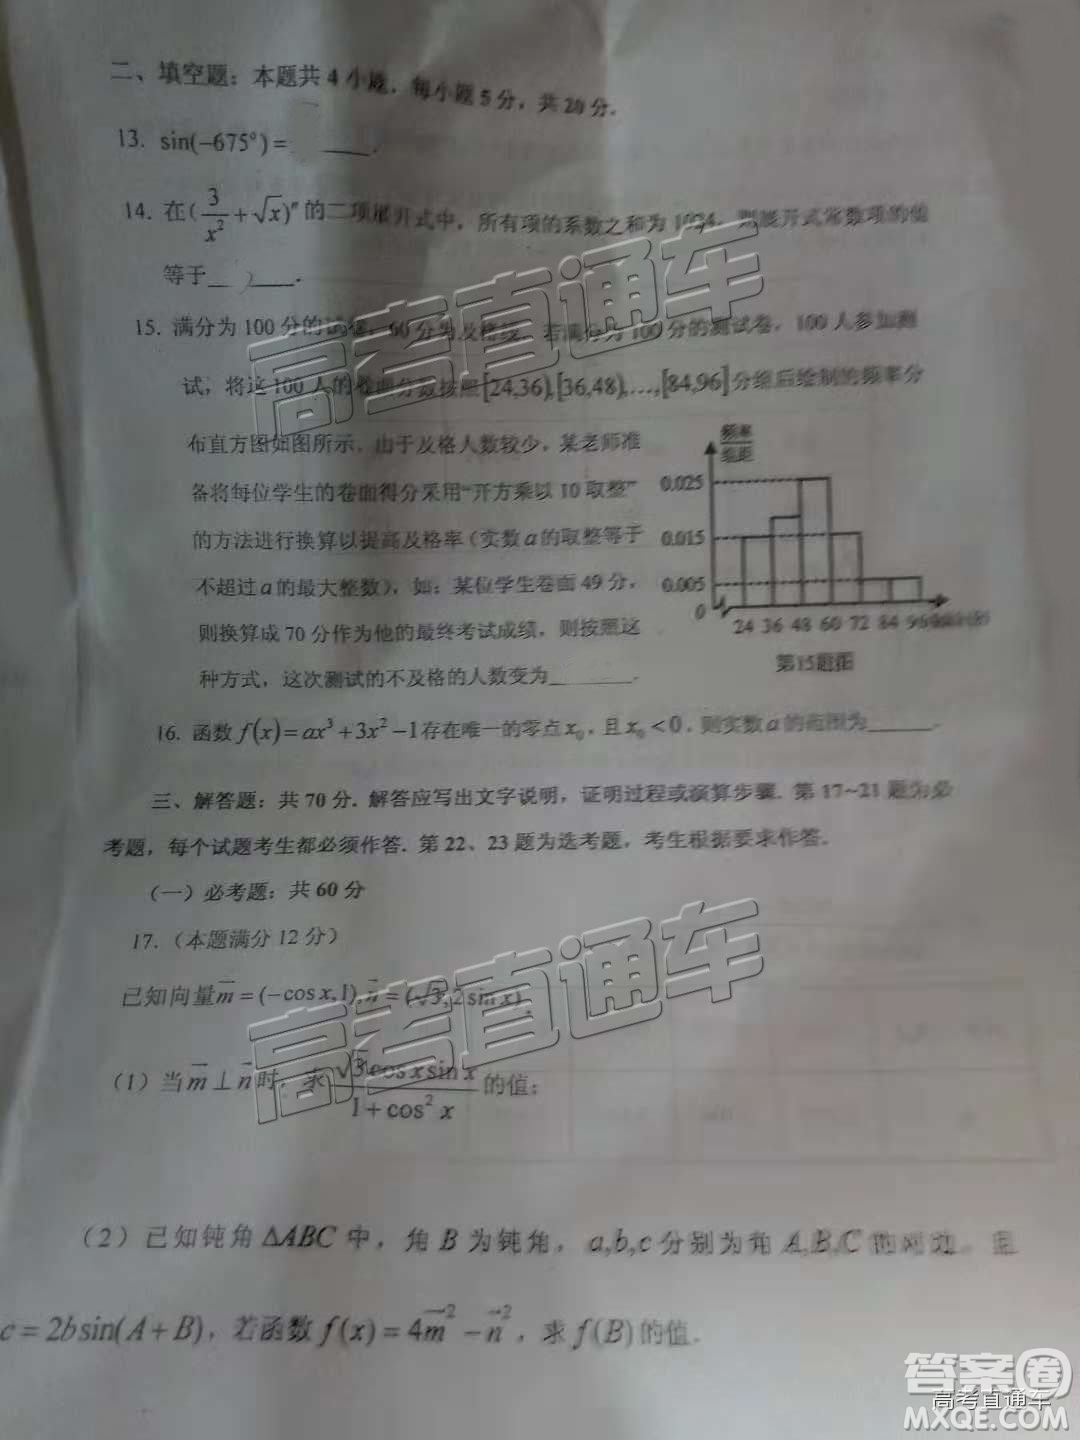 二、填空题：本题共4小题，每小题5分，共20分．
13. sin(−675°) = ____．
14. 在(3/x² + √x)ⁿ 的二项展开式中，所有项的系数之和为1024，则展开式常数项的值
等于____．
15. 满分为100分的试卷，60分为及格线，若满分为100分的测试卷，100人参加测
试，将这100人的卷面分数按照[24,36),[36,48),…,[84,96]分组后绘制的频率分
布直方图如图所示，由于及格人数较少，某老师准
备将每位学生的卷面得分采用“开方乘以10取整”
的方法进行换算以提高及格率（实数a的取整等于
不超过a的最大整数），如：某位学生卷面49分，
则换算成70分作为他的最终考试成绩，则按照这
种方式，这次测试的不及格的人数变为______．
频率
组距
0.025
0.015
0.005
0
24 36 48 60 72 84 96
第15题图
16. 函数f(x)=ax³+3x²−1存在唯一的零点x₀，且x₀<0，则实数a的范围为_____．
三、解答题：共70分. 解答应写出文字说明，证明过程或演算步骤. 第17~21题为必
考题，每个试题考生都必须作答. 第22、23题为选考题，考生根据要求作答.
（一）必考题：共60分
17.（本题满分12分）
已知向量m=(−cos x,1),n=(√3,2sin x)．
(1) 当m⊥n时，求 √3cos x sin x / 1+cos² x 的值；
(2) 已知钝角ΔABC中，角B为钝角，a,b,c分别为角A,B,C的对边，且
c=2b sin(A+B)，若函数f(x)=4m²−n²，求f(B)的值．
高考直通车
高考直通车
答案圈
高考直通车
MXQE.COM